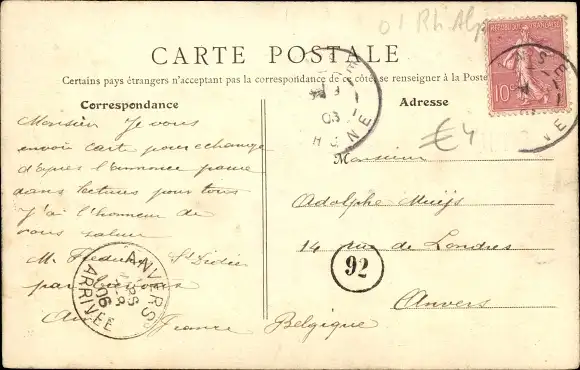 01 Rh Alp
CARTE POSTALE
Certains pays étrangers n'acceptant pas la correspondance de ce côté, se renseigner à la Poste
Correspondance
Monsieur Je vous
envoie cart pour echange
d'après l'annonce parue
dans lectures pour tous
J'ai l'honneur de
vous saluer
M. St Didier
par
France
Adresse
€4
Monsieur
Adolphe
14 rue de Londres
Anvers
Belgique
92
ANVERS
ARRIVÉE
1906
REPUBLIQUE FRANÇAISE
10